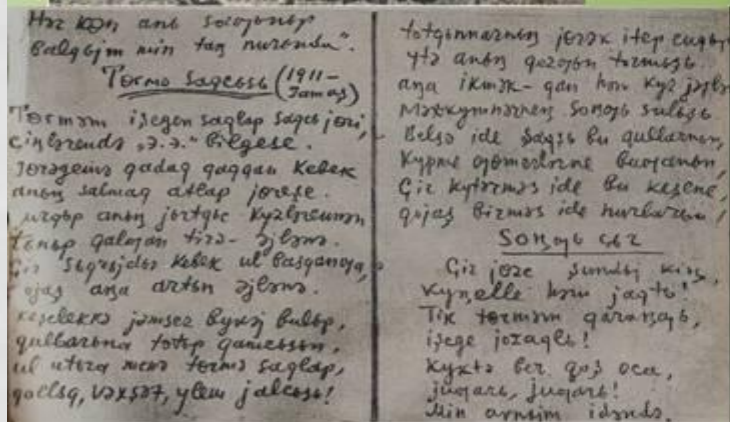 Hər kөn anь sataşьnьp
Balqьjm min taŋ nurьnda".
Tөrmə saqcьsь (1911-
Jamaş)
Tөrməm işegen saqlap saqcь jөri,
ciŋlərendə „ə.ə." bilgese.
Jөrəgemə qadaq qaqqan kebek
anьŋ salmaq atlap jөreşe.
anьŋ jьrtqьc kyzlərennən
tonьp qalaƣan tirə-əjlənə.
Çir sьƣьjdьr kebek ul basqanda,
qojaş aŋa artьn əjlənə.
Keşelekkə jəmsez bulьp,
qullarьna totьp qamcьsьn,
ul utьra menə tөrmə saqlap,
qollьq, vəxşət, ylem jalcьsь!
totqьnnarnьŋ jөrək itep
ytə anьŋ tormьşь.
aŋa ikmək - qan həm kyz jəşlə
Məxkymnərneŋ soŋƣь sulьşь
Belsə ide saqcь bu qullarnьŋ
Kypme ƣomerlərne buƣanьn,
Çir kytərməs ide bu keşene,
qojaş birməs ide nurlarьn!
Soŋƣь çьr
Çir jөze şundьj kiŋ,
Kyŋelle həm jaqtь!
Tik tөrməm qaraŋƣь,
işege jozaqlь!
Kyktə ber qoş oca,
juƣarь, juƣarь!
Min idəndə,